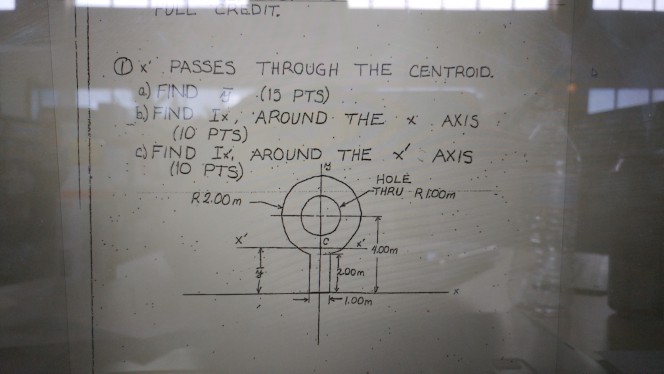 FULL CREDIT.
① x' PASSES THROUGH THE CENTROID.
a) FIND ȳ .(15 PTS)
b) FIND Ix, AROUND THE x AXIS
(10 PTS)
c) FIND Ix', AROUND THE x' AXIS
(10 PTS)
y
HOLE
THRU R 1.00m
R 2.00m
C
x'
x'
4.00m
ȳ
2.00m
x
1.00m